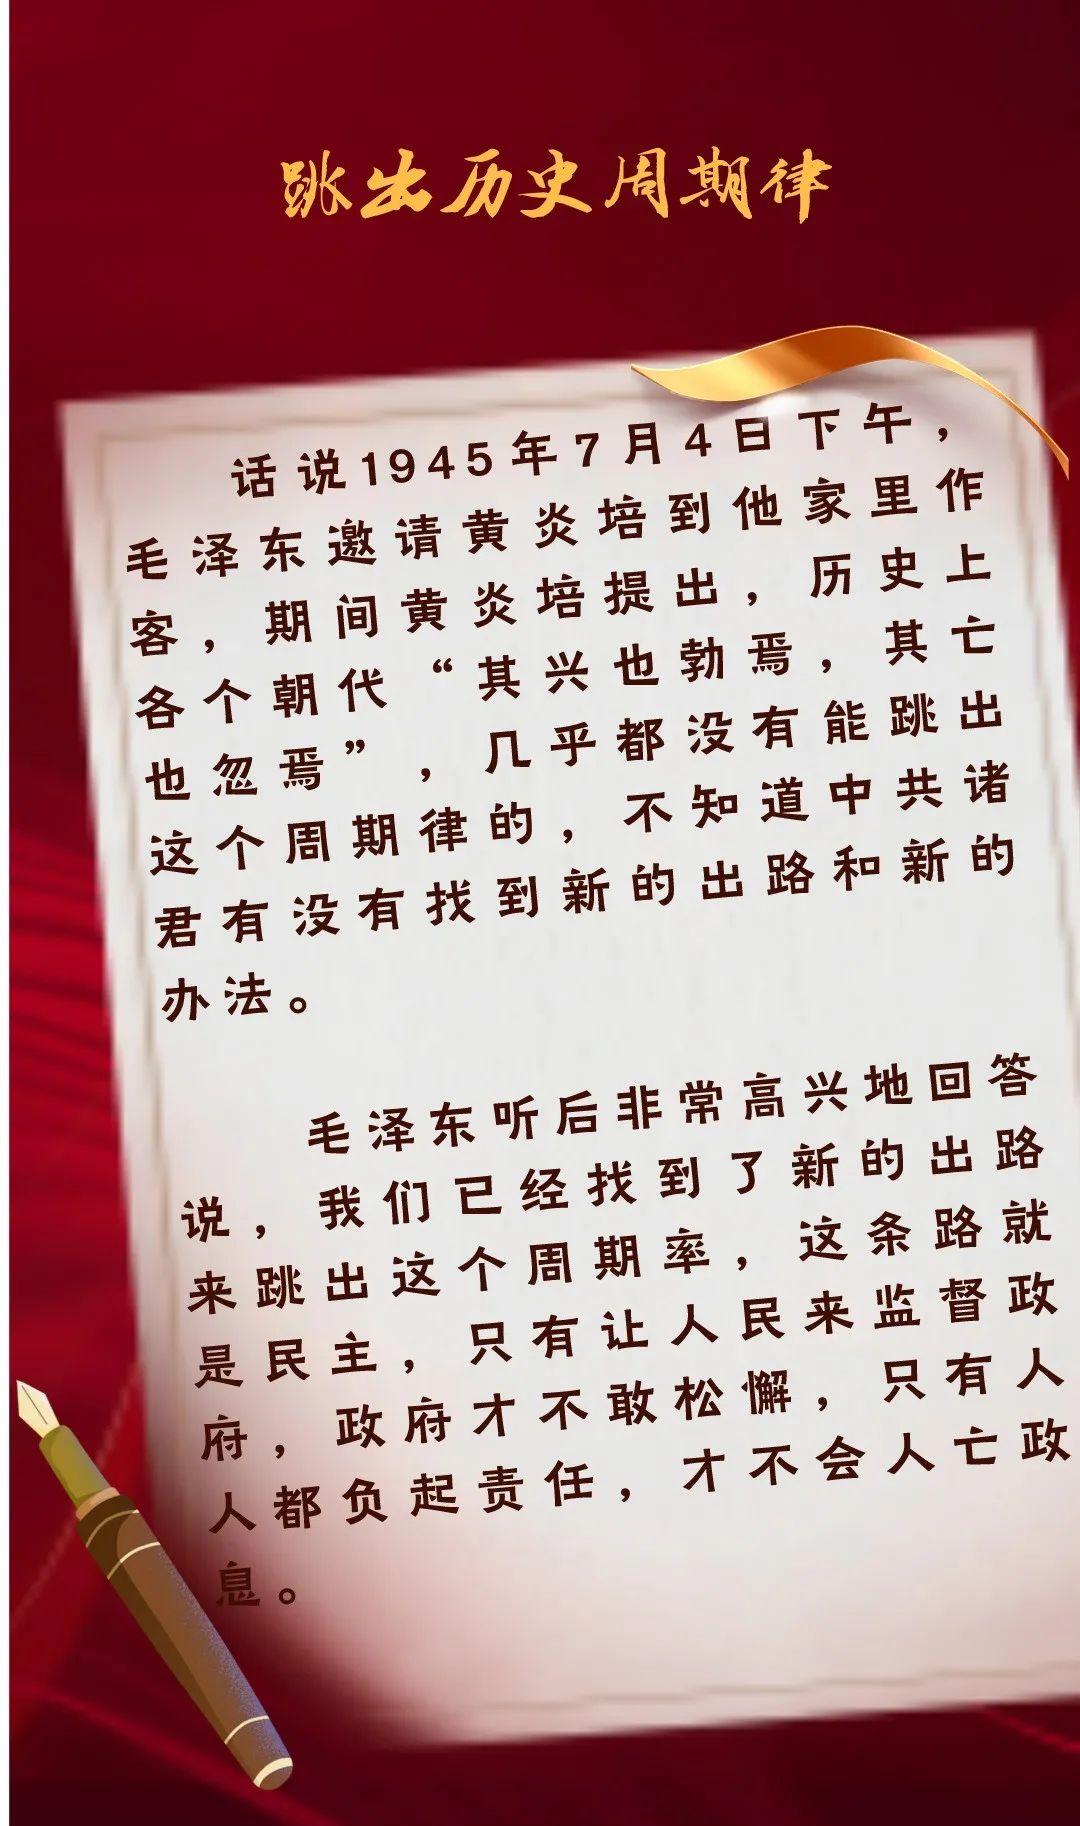 跳出历史周期律
话说1945年7月4日下午，
毛泽东邀请黄炎培到他家里作
客，期间黄炎培提出，历史上
各个朝代“其兴也勃焉，其亡
也忽焉”，几乎都没有能跳出
这个周期律的，不知道中共诸
君有没有找到新的出路和新的
办法。
毛泽东听后非常高兴地回答
说，我们已经找到了新的出路
来跳出这个周期率，这条路就
是民主，只有让人民来监督政
府，政府才不敢松懈，只有人
人都负起责任，才不会人亡政
息。